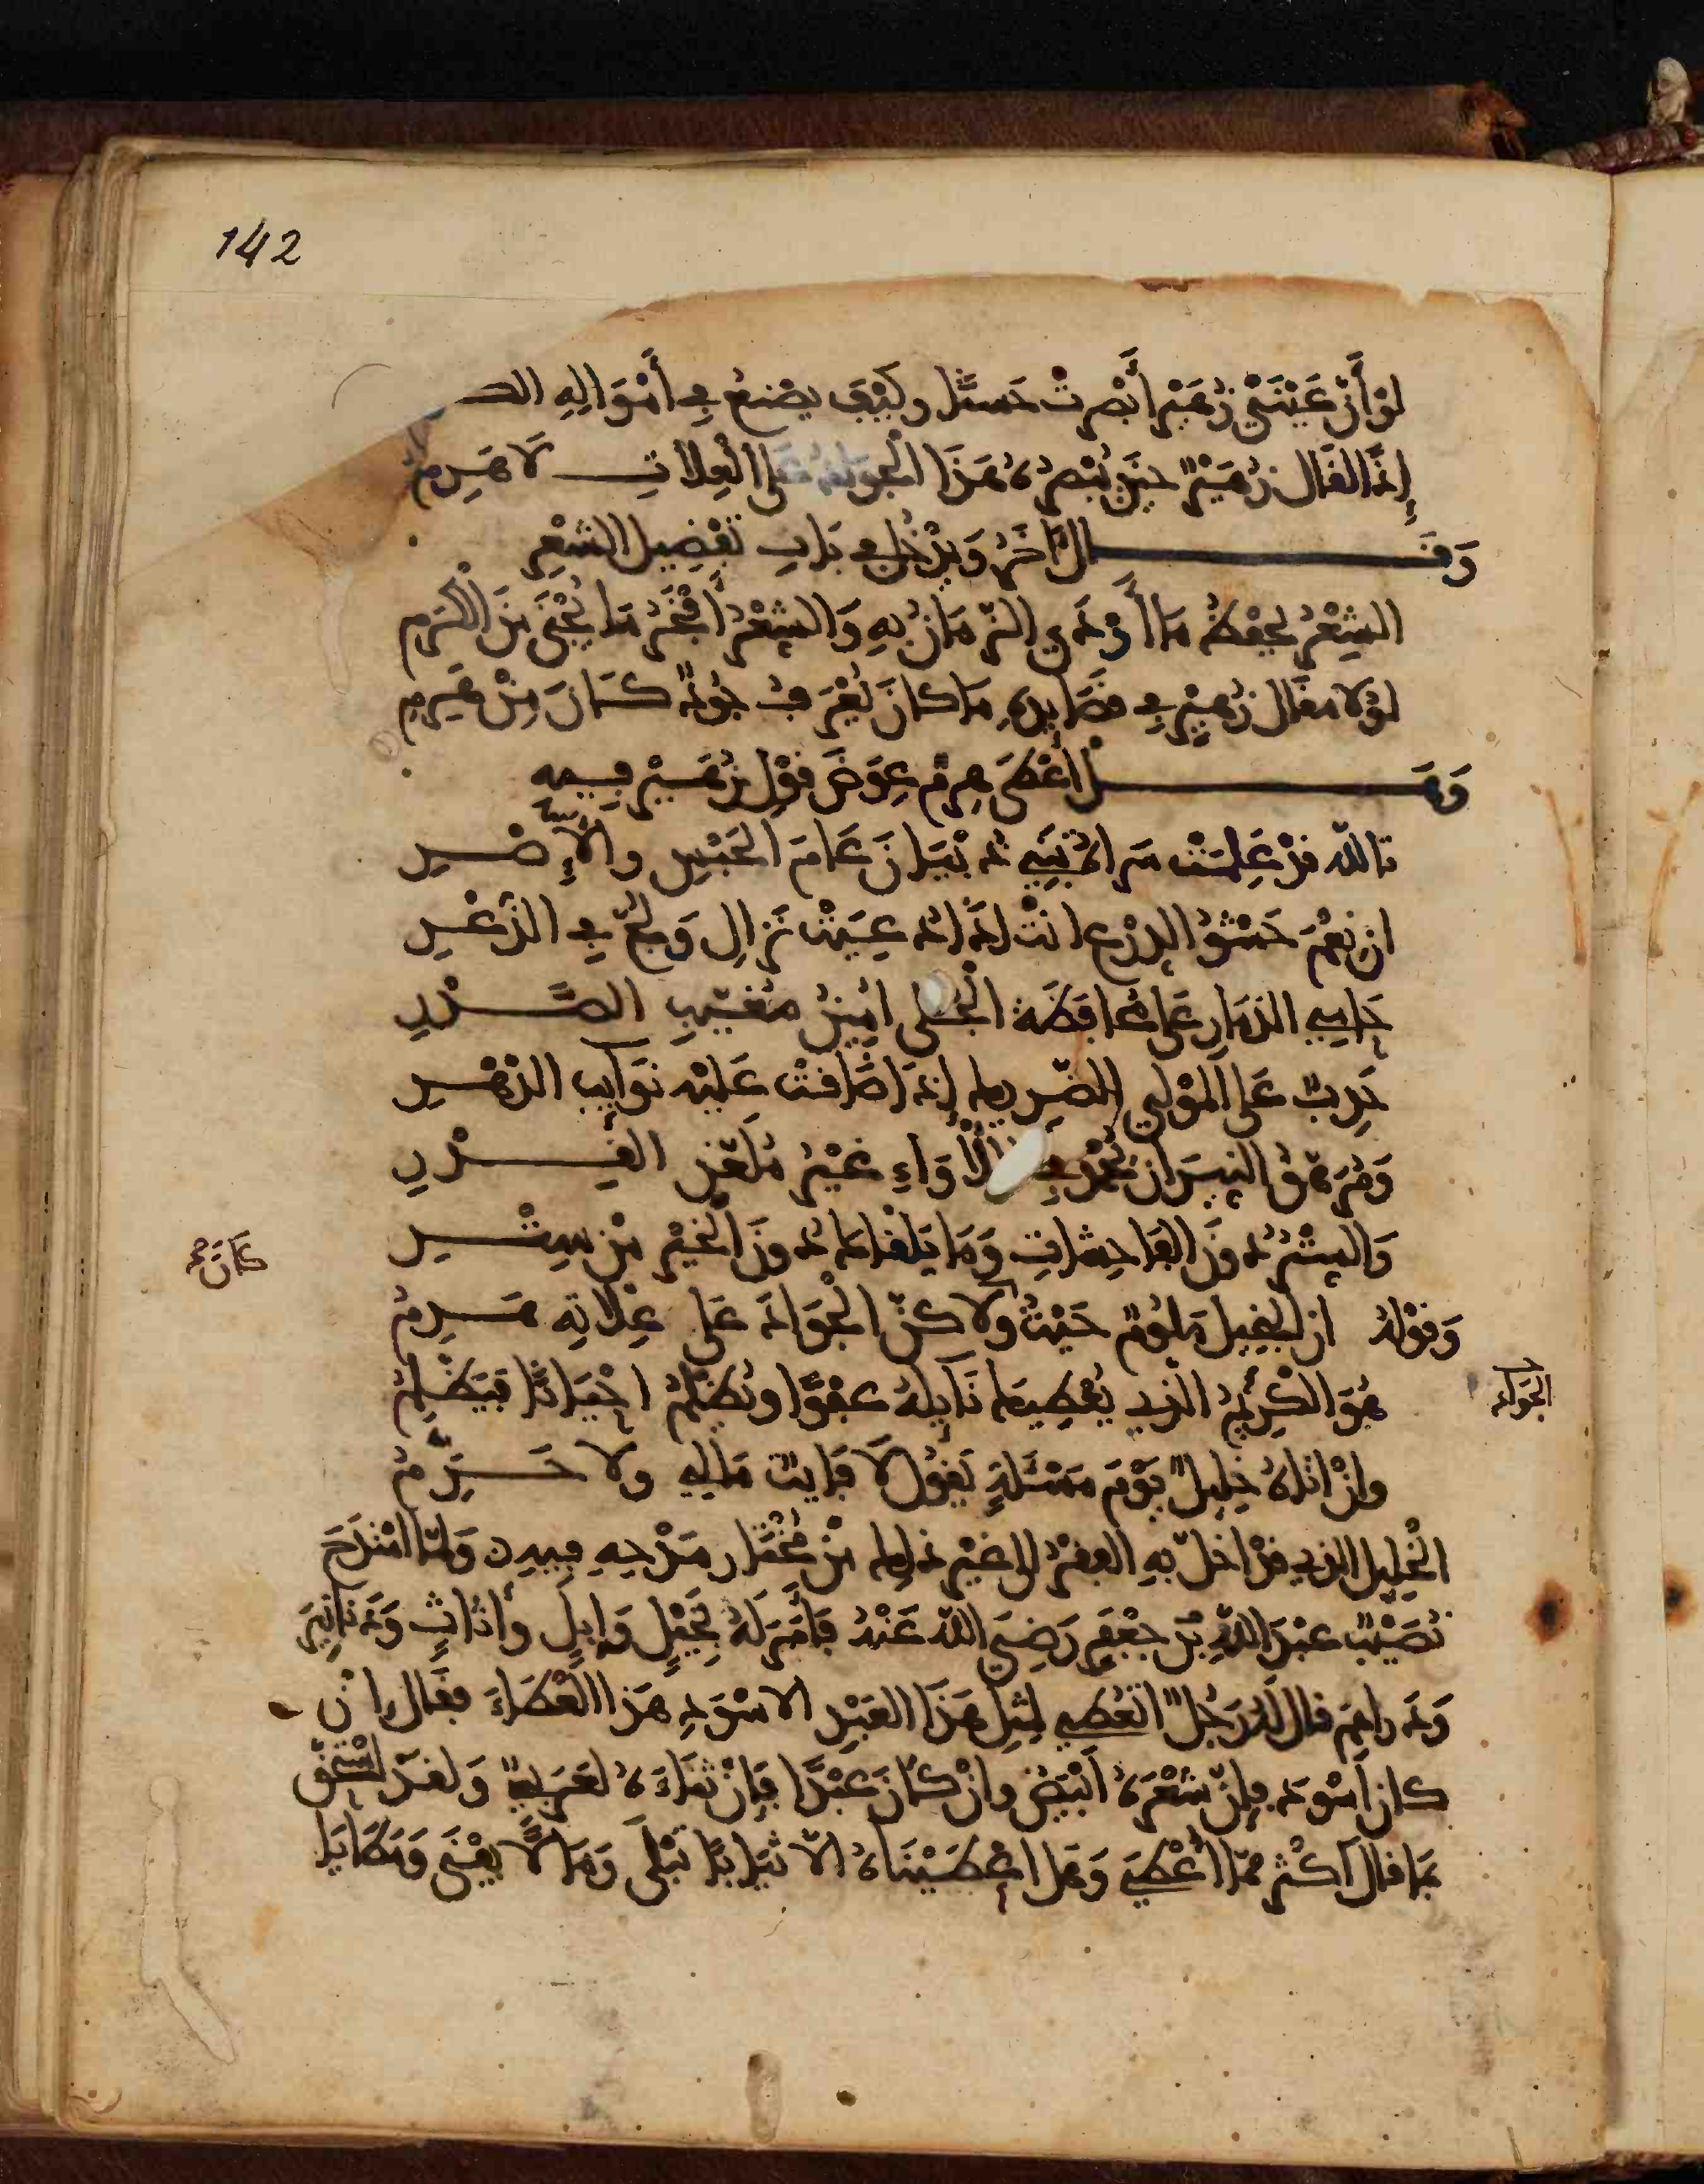 142
لَوْ أَنَّ عَيْنَيْ زُهَيْرٍ أَبْصَرَتْ حَسَنًا وكَيْفَ يصْنَعُ في أَمْوَالِهِ
إِذًا لقَالَ زُهَيْرٌ حينَ يُبْصِرُهُ هَذَا الجَوَادُ عَلَى العِلَّاتِ لَا هَرِمُ
وَقَـــال آخَرُ وَيَدْخُلُ في بَابِ تَفْضِيلِ الشعْرِ
الشِعْرُ يَحْفَظُ مَا أَوْدَى الزّمَانُ بِهِ وَالشِعْرُ أَفْخَرُ مَا يُجْنَى مِنَ الْكَرَمِ
لَوْلَا مقَالُ زُهَيْرٍ في قصَايِدِهِ مَا كَانَ يُعْرَفُ جُودٌ كَانَ مِنْ هَرِمِ
وَهَـــلْ أَعْطَى هرِمٌ عِوَضَ قَوْلِ زُهَيْرٍ فيه
تاللّه قدْ عَلِمَتْ سراةُ بَنِي ذُبْيَانَ عَامَ الحَبْسِ والْإِصْرِ
ان نِعْمَ حَشْوُ الدِرْعِ انتْ اذَا دُعِيَتْ نَزالِ وَلُجَّ في الذُّعْرِ
حَامِي الذمَارِ عَلَى مُحَافَظَة الْجُلَّى امِينُ مُغَيَّبِ الصَّدْرِ
حَدِبٌ عَلَى المَوْلَى الضّرِيك إِذَا ضَافَتْ عَلَيْهِ نَوَايِبُ الدَهْرِ
وَمُرَهَّقُ النِيرَانِ يُحْمَدُ في اللَّأْوَاءِ غَيْرُ مُلَعَّنِ القِدْرِ
وَالسِتْرُ دُونَ الفَاحِشَاتِ وَمَا يَلْقَاكَ دُونَ الْخَيْرِ مِنْ سِتْرِ
كَانَ
وَقَوْلُهُ ان الْبخِيلَ مَلُومٌ حَيْثُ ولَاكِنَّ الْجَوَادَ عَلَى عِلَّاتِهِ هَرِمُ
هُوَ الكَرِيمُ الّذِي يُعْطِيكَ نَايِلَهُ عفْوًا ويُظْلَمُ احْيَانًا فيَظَّلِمُ
الجَوَاد
وانْ اتَاهُ خَلِيلٌ يَوْمَ مَسْئَلَةٍ يَقُولُ لَا غَايِبٌ مَالِي ولا حَرِمُ
الْخَلِيلُ الذِي قَدْ اخَلّ بِهِ الفقْرُ الى غيْرِ ذلِكَ مِنْ مُخْتَارِ مَدْحِهِ فِيهِ وَلمّا امْتَدَحَ
نُصَيْبٌ عبْدَ اللّهِ بْنَ جعْفَرٍ رَضِيَ اللّه عَنْهُ فَأَمَرَ لَهُ بِخَيْلٍ وَإِبِلٍ وأثاثٍ وَدَنَانِيرَ
وَدَرَاهِمَ قال لَهُ رَجُلٌ اتُعْطِي لِمِثْلِ هَذَا العَبْدِ الاسْوَدِ هَذَا العَطَاءَ فقَال إِنْ
كان أَسْوَدَ فإنّ شعْرَهُ أبْيَضُ وانْ كَانَ عَبْدًا فَإنّ ثنَاءَهُ لعَرَبِيٌّ وَلقَد اسْتَحَقَّ
بمَا قال أكثرَ ممّا أُعْطِيَ وَهَل اعْطَيْنَاهُ الّا ثيَابًا تَبْلَى وَمَالًا يفْنَى وَمَطَايَا